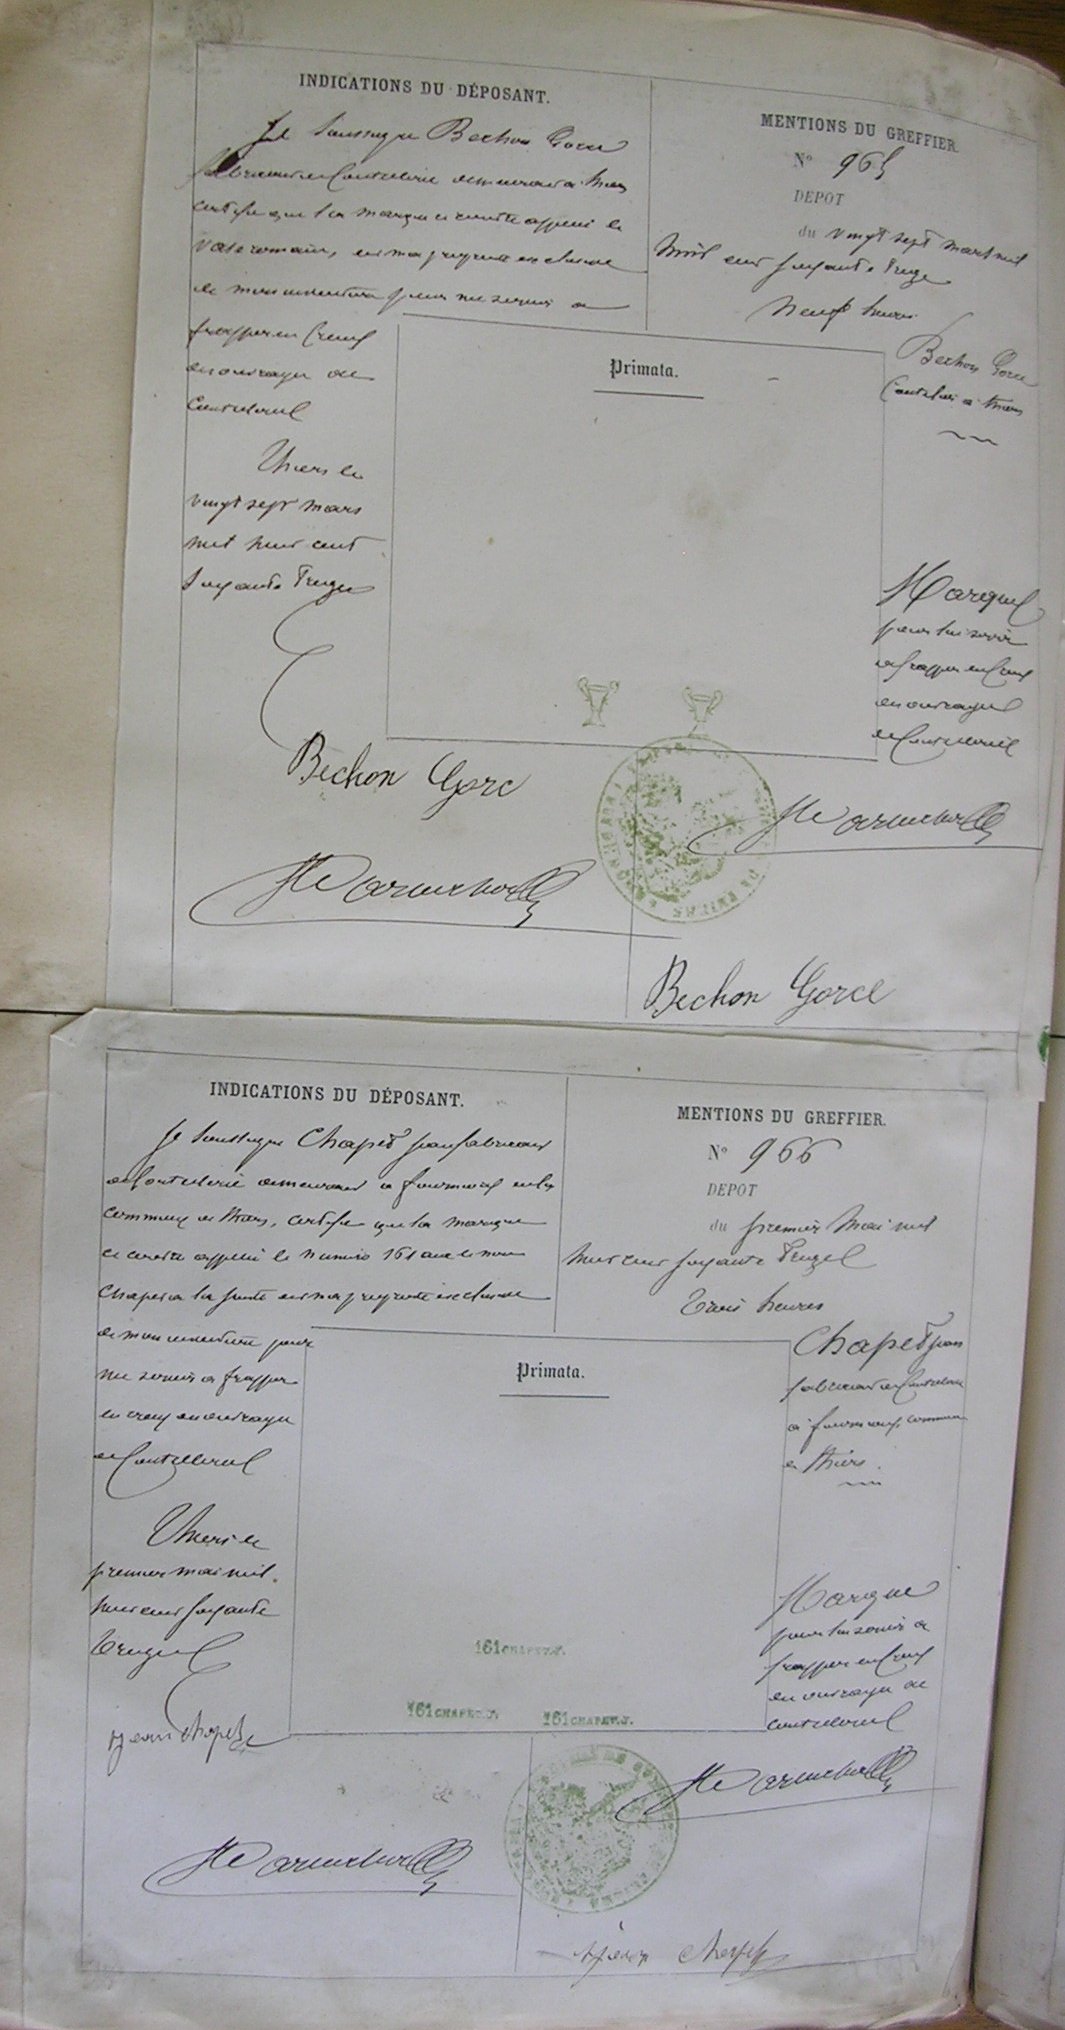 INDICATIONS DU DÉPOSANT.
Je Soussigné Bechon Gorce
fabricant de Coutellerie demeurant à Thiers
certifie que la marque ci contre appelée le
Vase romain, est ma propriété exclusive
de mon invention pour me servir a
frapper en Creux
en ouvrages de
Coutellerie
Thiers le
vingt sept mars
mil huit cent
soixante Treize
Bechon Gorce
MENTIONS DU GREFFIER.
N° 965
DEPOT
du vingt sept mars mil
huit cent soixante Treize
Neuf heures
Primata.
Bechon Gorce
Coutelier à Thiers
Marque
pour lui servir
a frapper en Creux
en ouvrages
de Coutellerie
Bechon Gorce
INDICATIONS DU DÉPOSANT.
Je Soussigné Chapet Jean fabricant
de Coutellerie demeurant a
commune de Thiers, certifie que la marque
ci contre appelée le Numéro 161 avec le nom
Chapet a la suite est ma propriété exclusive
de mon invention pour
me servir a frapper
en creux en ouvrages
de Coutellerie
Thiers le
premier mai mil
huit cent soixante
treize
Jean Chapet
MENTIONS DU GREFFIER.
N° 966
DEPOT
du premier Mai mil
huit cent soixante Treize
Trois heures
Primata.
Chapet Jean
fabricant de Coutellerie
a commune
de Thiers.
Marque
pour lui servir a
frapper en Creux
en ouvrages de
Coutellerie
161 CHAPET.J.
161 CHAPET.J.
161 CHAPET.J.
Jean Chapet